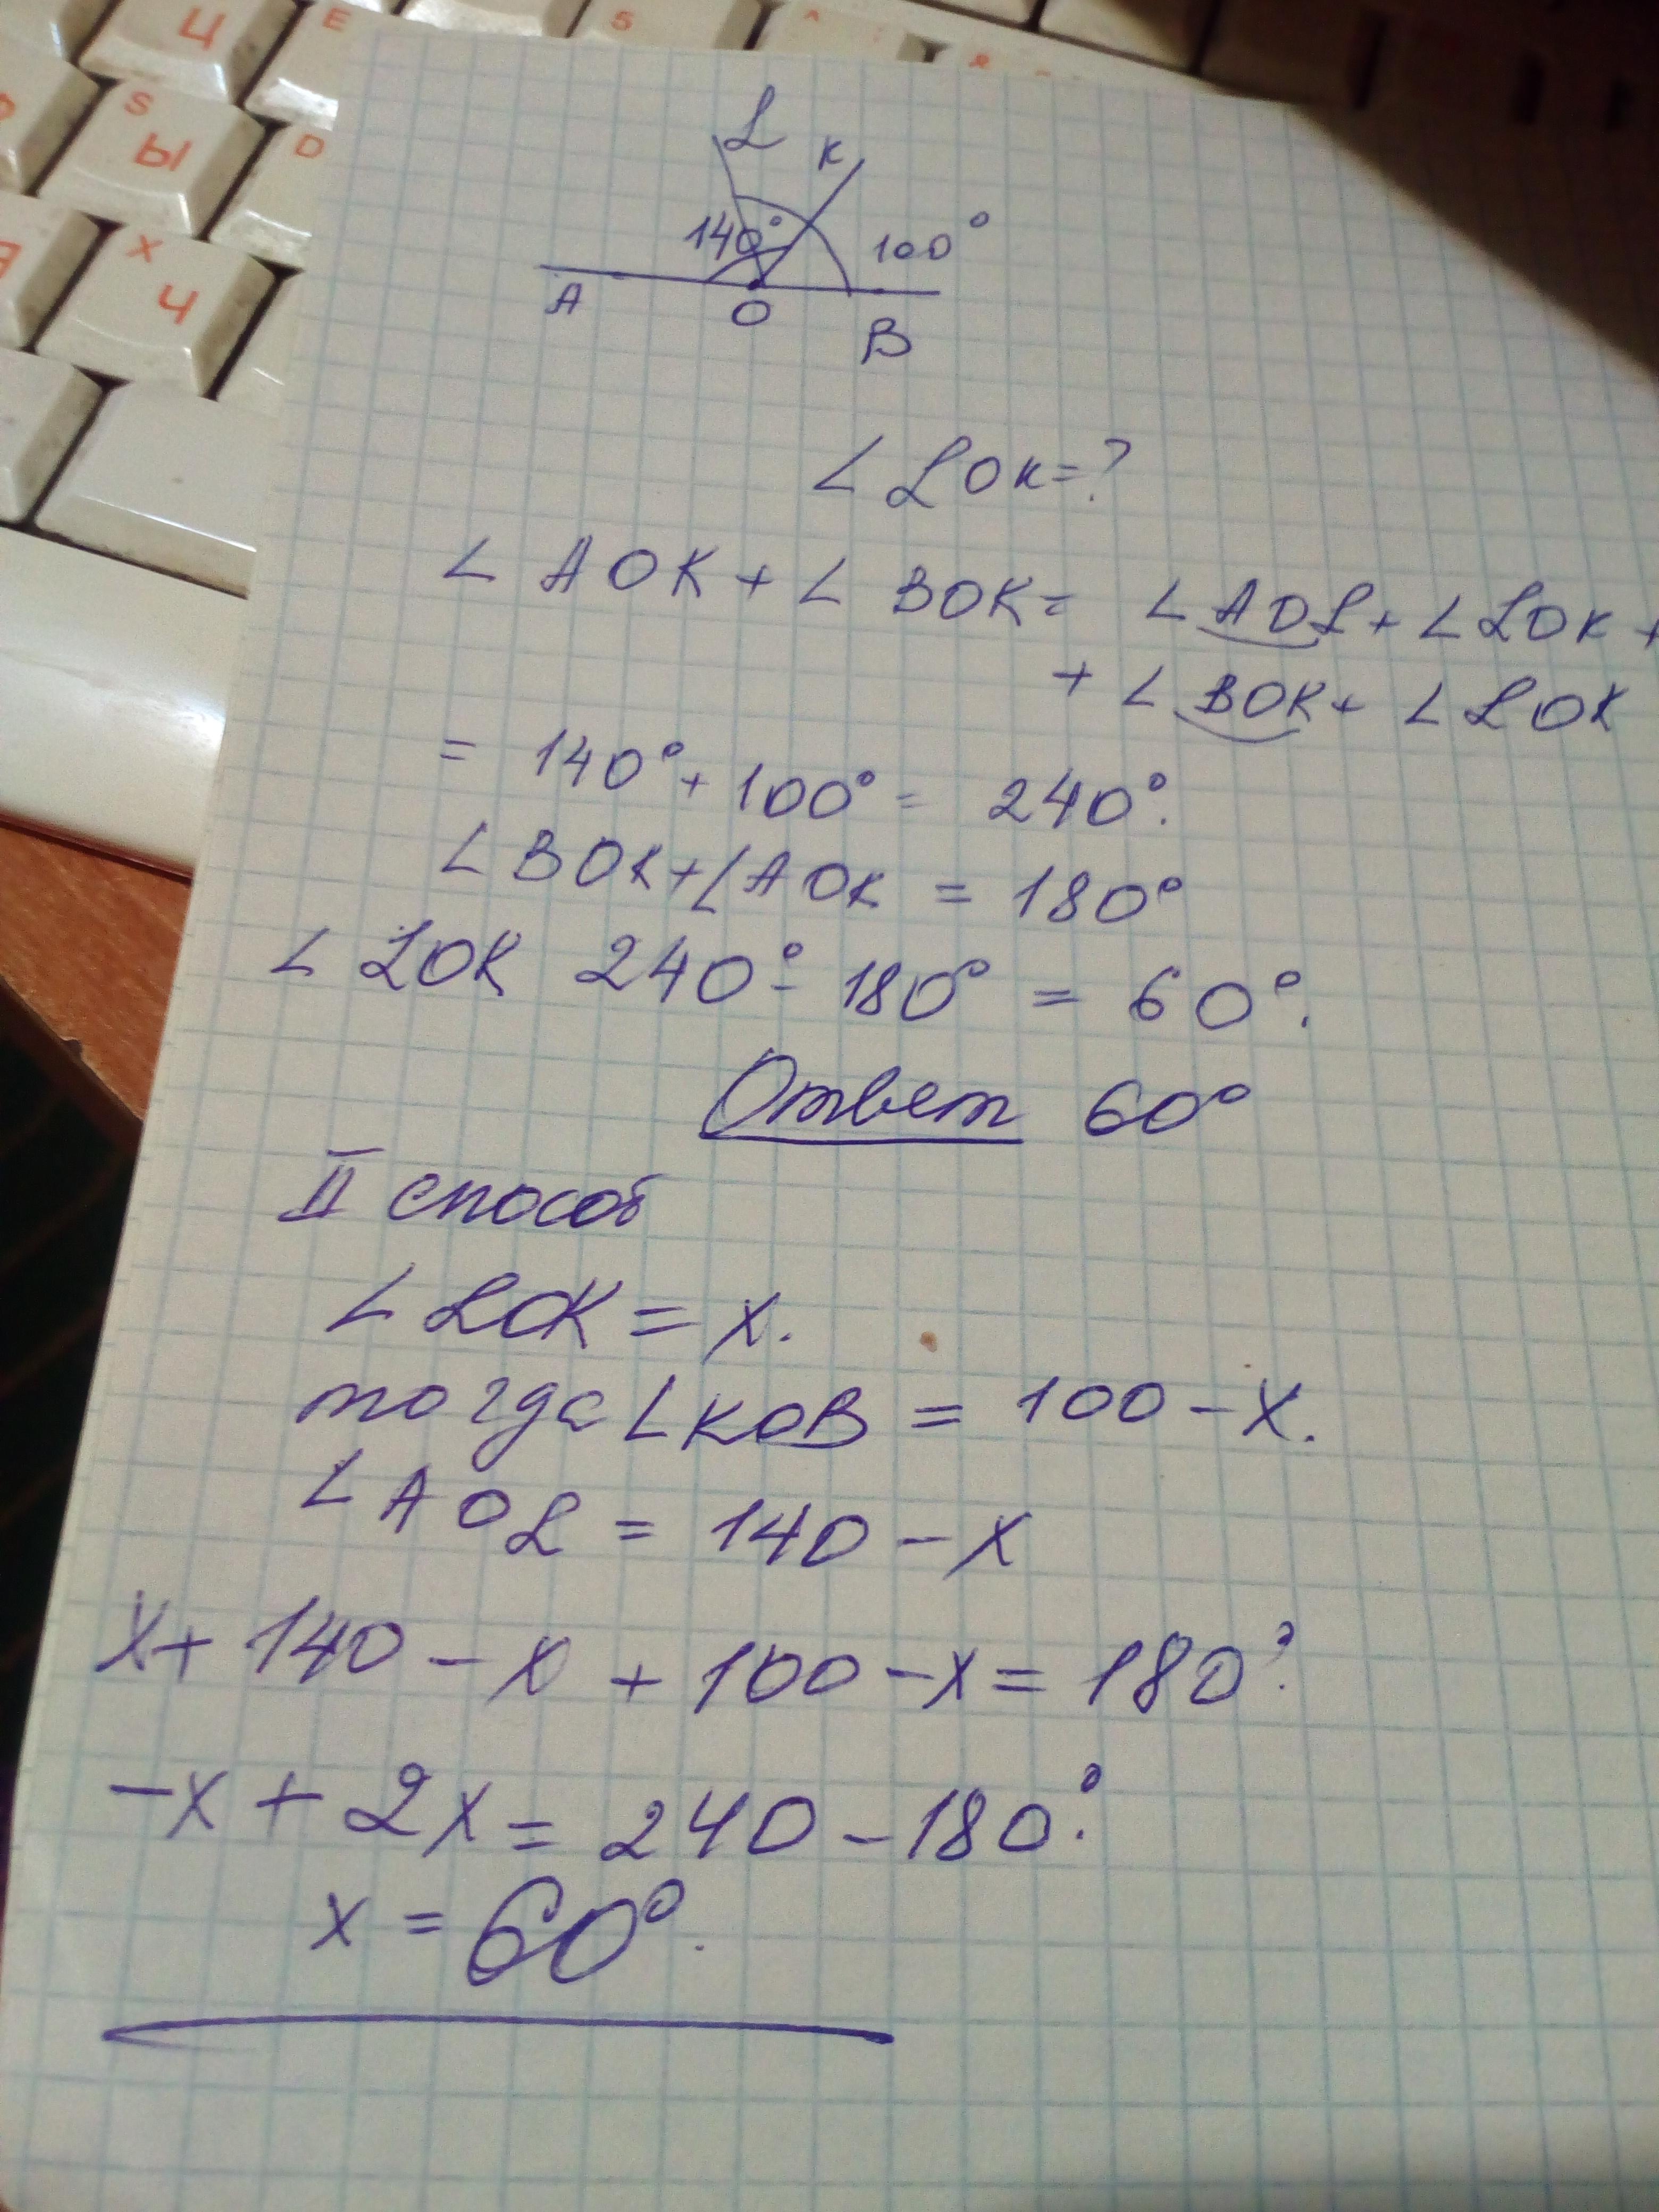 Ц
E
5
S
Ы
D
X
Ч
L K
140° 100°
A O B
∠ LOK=?
∠ AOK + ∠ BOK = ∠ AOL + ∠ LOK +
+ ∠ BOK + ∠ LOK
= 140° + 100° = 240°.
∠ BOK + ∠ AOK = 180°
∠ LOK 240° - 180° = 60°.
Ответ 60°
II способ
∠ LOK = x.
тогда ∠ KOB = 100 - x.
∠ AOL = 140 - x
x + 140 - x + 100 - x = 180°.
-x + 2x = 240 - 180°.
x = 60°.